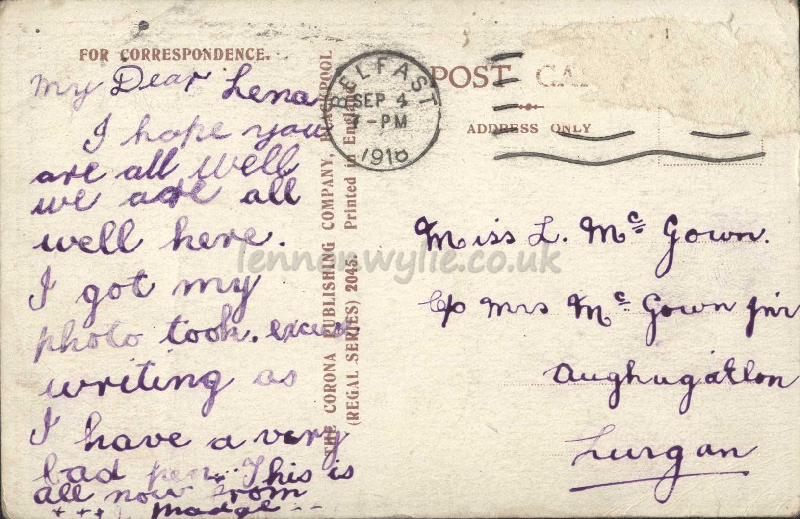 FOR CORRESPONDENCE.
My Dear Lena
I hope you
are all well
we are all
well here.
I got my
photo took. excuse
writing as
I have a very
bad pen. This is
all now from
+ + + Madge --
THE CORONA PUBLISHING COMPANY, BLACKPOOL
(REGAL SERIES) 2045. Printed in England
BELFAST
SEP 4
7-PM
1918
POST CA
ADDRESS ONLY
Miss L. McGown.
C/o Mrs McGown Jnr
Aughugatlon
Lurgan
lennonwylie.co.uk